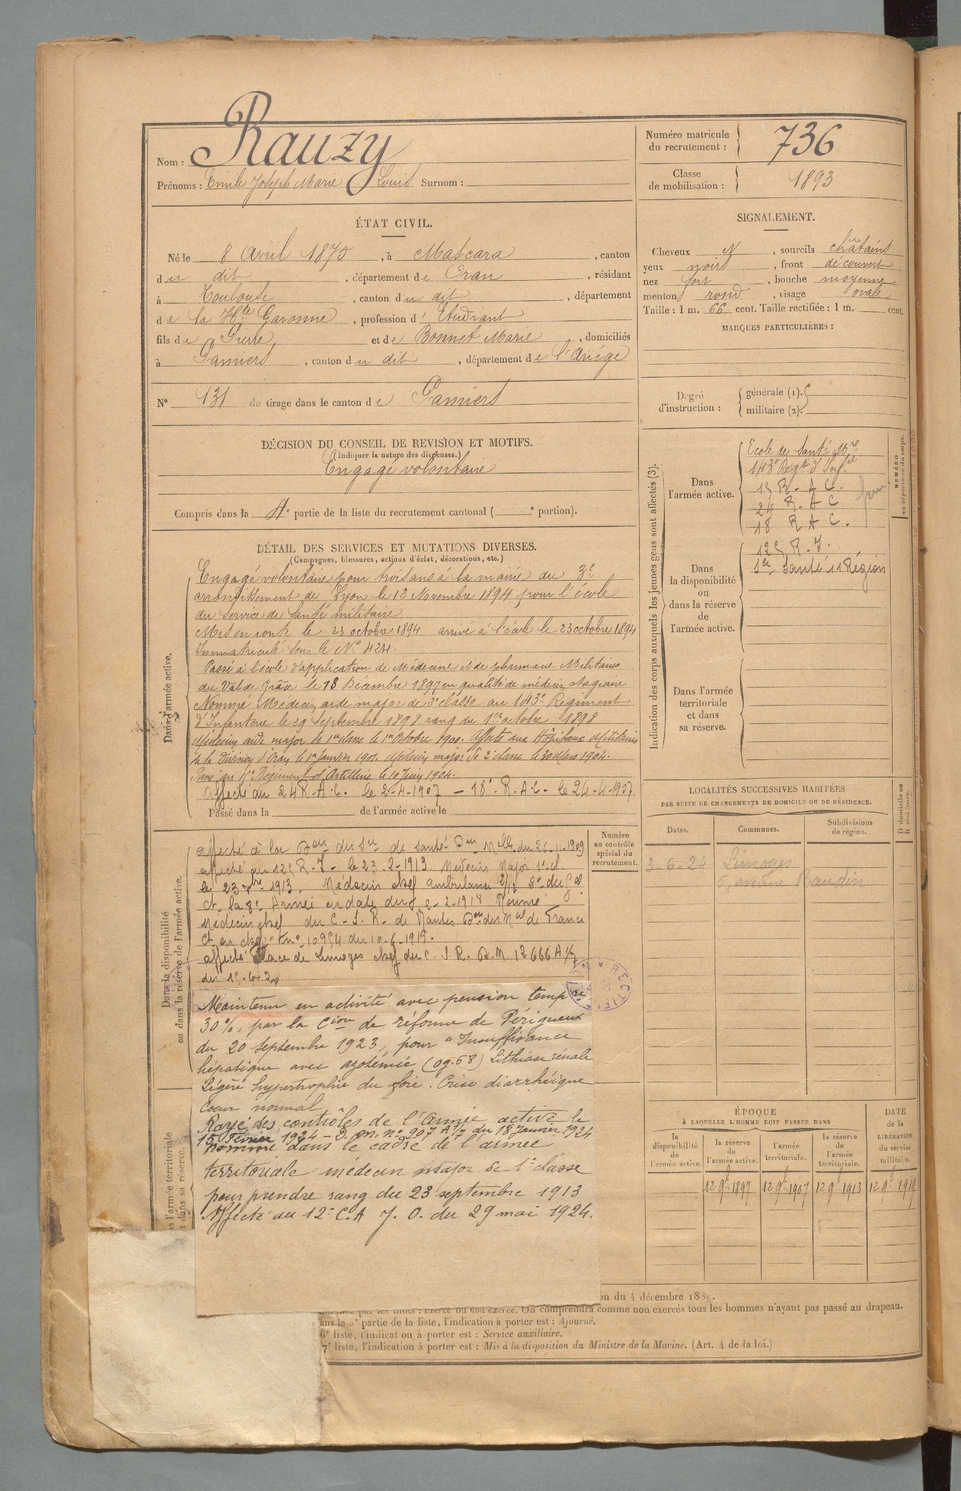 Nom : Rauzy
Prénoms : Emile Joseph Marie Louis Surnom :
Numéro matricule du recrutement : 736
Classe de mobilisation : 1893
ÉTAT CIVIL.
Né le 8 Avril 1875, à Mascara, canton
du dit, département de Oran, résidant
à Toulouse, canton du dit, département
de la Hte Garonne, profession d'Etudiant
fils de Pierre et de Bonnet Marie, domiciliés
à Pamiers, canton du dit, département de l'Ariège
N° 131 de tirage dans le canton de Pamiers
SIGNALEMENT.
Cheveux N, sourcils châtains
yeux noirs, front découvert
nez fort, bouche moyenne
menton rond, visage ovale
Taille : 1 m. 66 cent. Taille rectifiée : 1 m. cent.
MARQUES PARTICULIÈRES :
Degré d'instruction : générale (1).
militaire (2).
DÉCISION DU CONSEIL DE REVISION ET MOTIFS.
(Indiquer la nature des dispenses.)
Engagé volontaire
Compris dans la 4e partie de la liste du recrutement cantonal ( e portion).
DÉTAIL DES SERVICES ET MUTATIONS DIVERSES.
(Campagnes, blessures, actions d'éclat, décorations, etc.)
Dans l'armée active.
Engagé volontaire pour trois ans à la mairie du 3e
arrondissement de Lyon le 12 Novembre 1894 pour l'école
du service de santé militaire
Mis en route le 23 octobre 1894 arrivé à l'école le 23 octobre 1894
Immatriculé sous le N° 424.
Passé à l'école d'application de Médecine et de pharmacie Militaires
du Val de Grâce le 18 Décembre 1897 en qualité de médecin stagiaire
Nommé Médecin aide major de 2e classe au 143e Régiment
d'Infanterie le 29 Septembre 1898 rang du 1er octobre 1898
Médecin aide major de 1ère classe le 1er Octobre 1900. Affecté aux Hôpitaux Militaires
de la Division d'Oran le 1er Janvier 1901. Médecin major de 2e classe le 30 Mars 1904.
Régiment d'Artillerie le 10 Juin 1904.
Affecté au 24 R.A.C. le 2-4-1907 – 18e R.A.C. le 24-4-1907
Passé dans la de l'armée active le
Dans la disponibilité ou dans la réserve de l'armée active.
Numéro au contrôle spécial du recrutement.
affecté au 125 R.I. le 23-2-1913 Médecin Major 1e cl
le 23 7bre 1913. Médecin chef ambulance
Médecin chef du C.S.R. de Nantes
du 10-6-1919.
affecté Place de Limoges chef du C.S.R. D.M. 12666 A 1/7
Maintenu en activité avec pension tempre
30%, par la Cion de réforme de Périgueux
du 20 septembre 1923, pour "Insuffisance
hépatique avec azotémie (0g.68) Lithiase rénale
Légère hypertrophie du foie. Crise diarrhéique
Cœur normal
Rayé des contrôles de l'Armée active le
15 Février 1924 – D.M. N° 907 A 1/7 du 18 janvier 1924
Nommé dans le cadre de l'armée
territoriale médecin major de 1e classe
pour prendre rang du 23 septembre 1913
Affecté au 12e C.A J.O. du 29 mai 1924.
Indication des corps auxquels les jeunes gens sont affectés (3).
Dans l'armée active.
Ecole de Santé Mre
143e Régt d'Infie
15 R.A.C.
24 R.A.C
18 R A C.
Dans la disponibilité ou dans la réserve de l'armée active.
125 R.I.
Santé 11 Région
Dans l'armée territoriale et dans sa réserve.
LOCALITÉS SUCCESSIVES HABITÉES
PAR SUITE DE CHANGEMENTS DE DOMICILE OU DE RÉSIDENCE.
Dates. Communes. Subdivisions de région.
3-6-24 Limoges
5, avenue Baudin
ÉPOQUE
À LAQUELLE L'HOMME DOIT PASSER DANS
DATE de la LIBÉRATION du service militaire.
la disponibilité de l'armée active. la réserve de l'armée active. l'armée territoriale. la réserve de l'armée territoriale.
12 9bre 1897 12 9bre 1907 12 9bre 1913 12 9bre 1919
on du 4 décembre 1889.
par les mots : exercé ou non exercé. On comprendra comme non exercés tous les hommes n'ayant pas passé au drapeau.
ans la e partie de la liste, l'indication à porter est : Ajourné.
6e liste, l'indication à porter est : Service auxiliaire.
7e liste, l'indication à porter est : Mis à la disposition du Ministre de la Marine. (Art. 4 de la loi.)